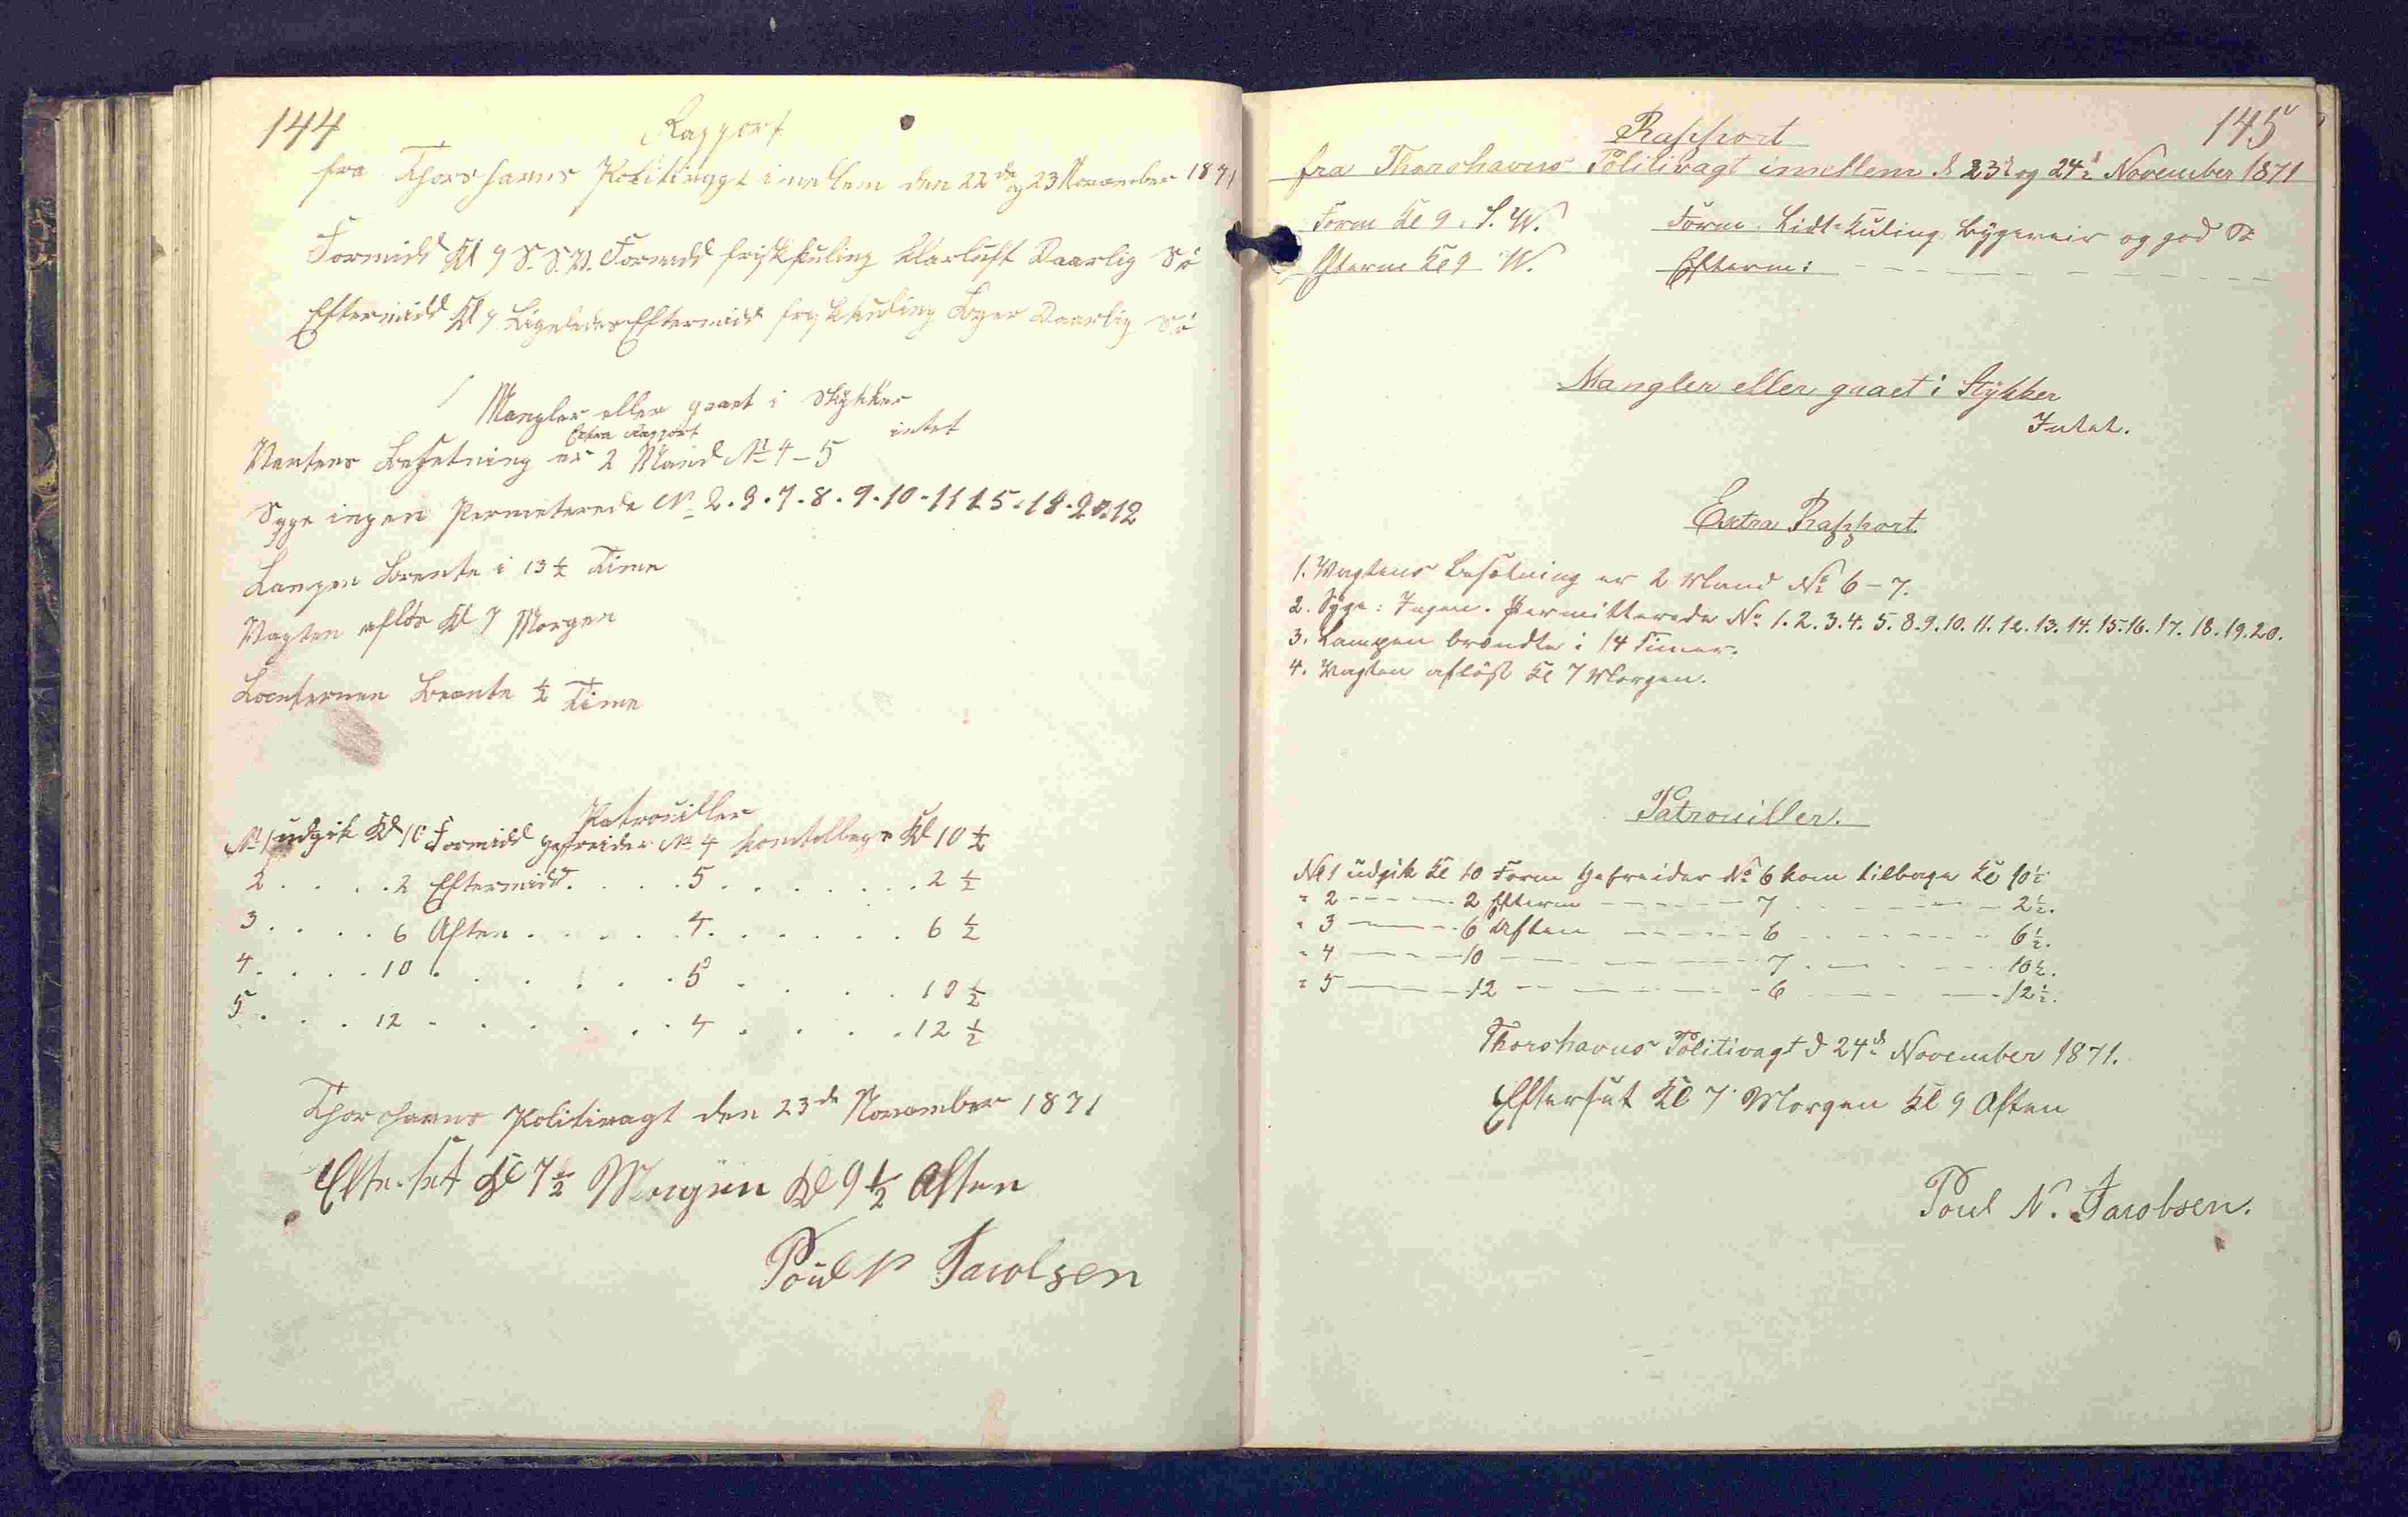 144
Rapport
fra Thorshavns Politivagt imelem den 22de og 23 November 1871
Formidd Kl 9 S. S. V. Formidd frisk kuling Klarluft Daarlig Sö
Eftermidd Kl 9 Ligeledes Eftermidd frisk kuling Byer Daarlig Sö
Mangler eller gaaet i Stykker
intet
Extra Rapport
Vagtens Besetning er 2 Mand No 4 - 5
Syge ingen Permeterede No 2. 3. 7. 8. 9. 10 - 11 15. 18. 20. 12
Lampen Brente i 13 ½ Time
Vagten aflös Kl 7 Morgen
Lanternen Brente ½ Time
Patrouiller
No 1 udgik Kl 10 Formidd gefreider No 4 kom tilbage Kl 10 ½
2 . . . . 2 Eftermidd . . . . 5 . . . . . . . . 2 ½
3 . . . . 6 Aften . . . . . 4 . . . . . . . 6 ½
4 . . . . 10 . . . . . . 5 . . . . 10 ½
5 . . . 12 . . . . . . 4 . . . . 12 ½
Thorshavns Politivagt den 23de November 1871
Efterset Kl 7 ½ Morgen Kl 9 ½ Aften
Poul N Jacobsen
145
Rapport
fra Thorshavns Politivagt imellem d 23d og 24d November 1871
Form Kl 9. S. W. Form. Lidt Kuling Bygeveir og god Sö
Efterm Kl 9 W. Efterm: - - - - - - -
Mangler eller gaaet i Stykker
Intet.
Extra Rapport
1. Vagtens Besætning er 2 Mand No 6 - 7.
2. Syge: Ingen. Permitterede No 1. 2. 3. 4. 5. 8. 9. 10. 11. 12. 13. 14. 15. 16. 17. 18. 19. 20.
3. Lampen brændte i 14 Timer.
4. Vagten aflöst Kl 7 Morgen.
Patrouiller.
No 1 udgik Kl 10 Form Gefreider No 6 kom tilbage Kl 10½
" 2 - - - - 2 Efterm - - - - - 7 - - - - - - 2½.
" 3 - - - - 6 Aften - - - - - 6 - - - - - - 6½.
" 4 - - - - 10 - - - - - - - 7 - - - - - 10½.
" 5 - - - - 12 - - - - - - - 6 - - - - - 12½.
Thorshavns Politivagt d 24d November 1871.
Efterset Kl 7 Morgen Kl 9 Aften
Poul N. Jacobsen.